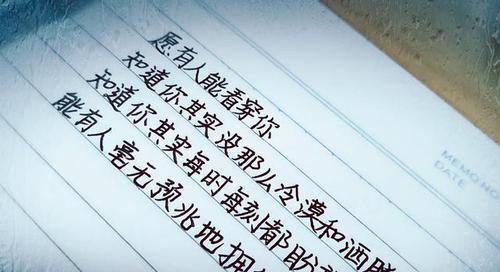 愿有人能看穿你
知道你其实没那么冷漠和洒脱
知道你其实每时每刻都盼
能有人毫无预兆地拥
MEMO NO
DATE